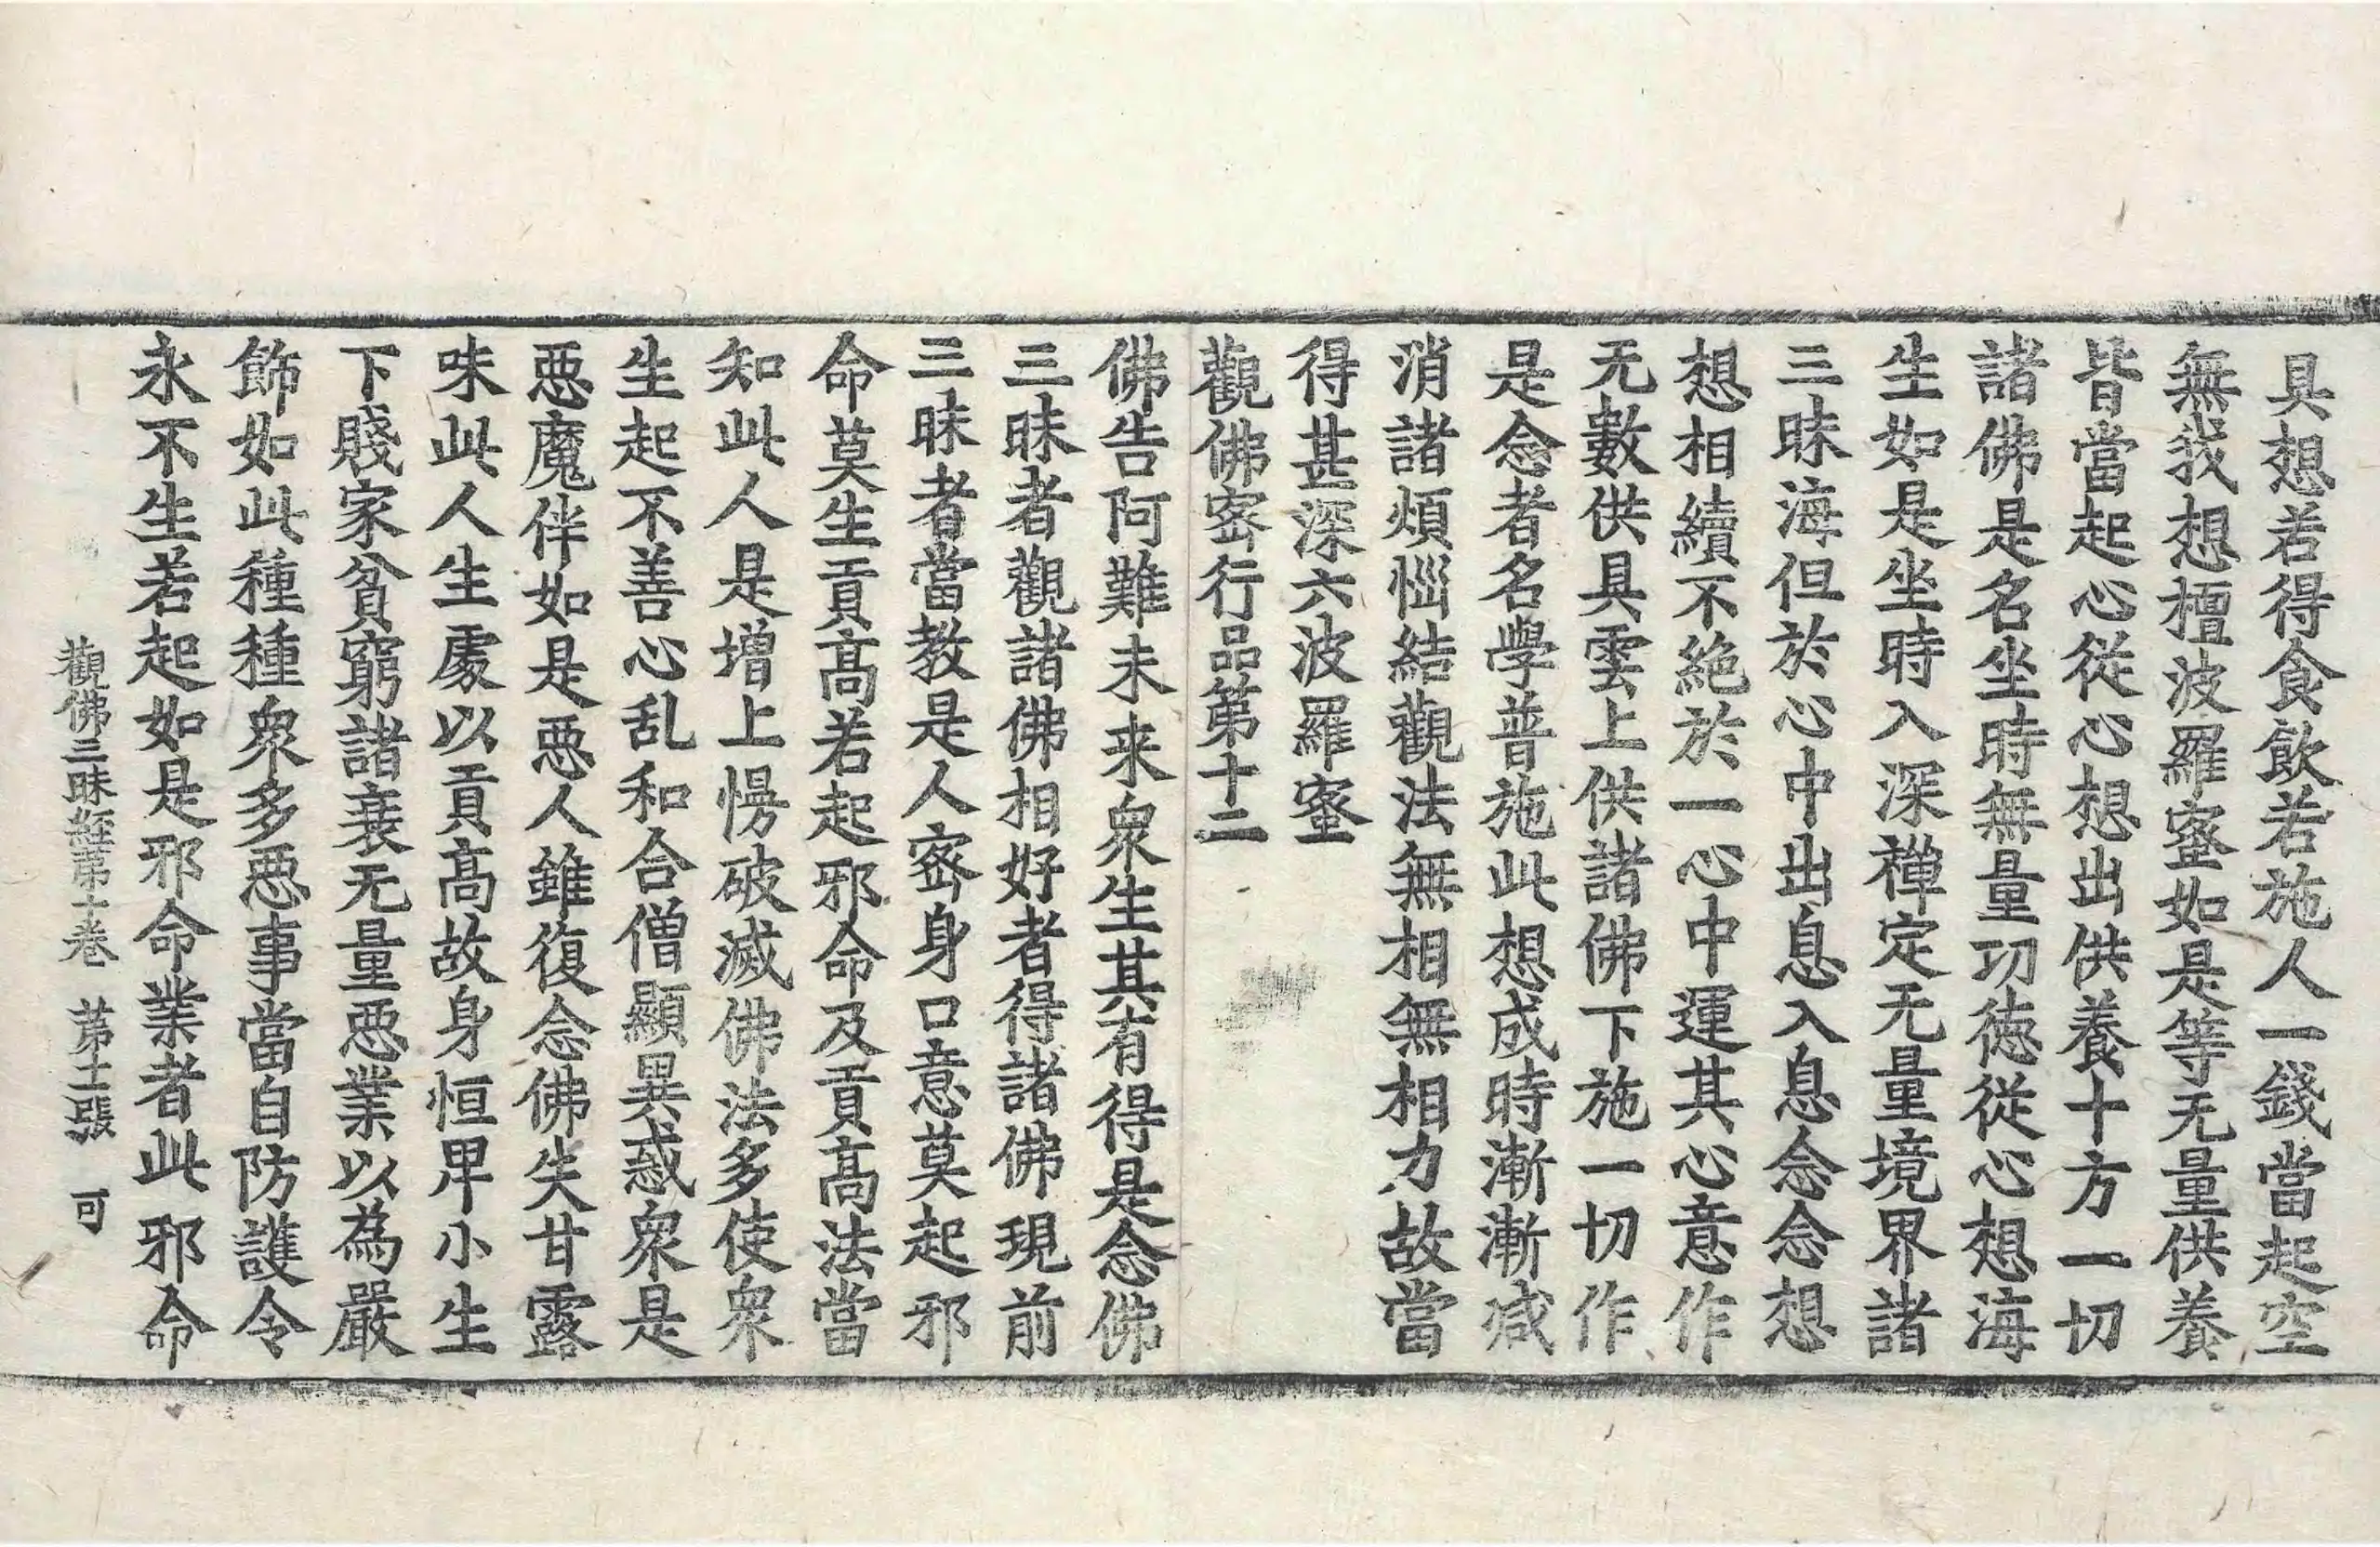 具想若得食飲若施人一錢當起空
無我想檀波羅蜜如是等无量供養
皆當起心從心想出供養十方一切
諸佛是名坐時無量功徳從心想海
生如是坐時入深禪定无量境界諸
三昧海但於心中出息入息念念想
想相續不絶於一心中運其心意作
无數供具雲上供諸佛下施一切作
是念者名學普施此想成時漸漸减
消諸煩惱結觀法無相無相力故當
得甚深六波羅蜜
觀佛密行品第十二
佛告阿難未来衆生其有得是念佛
三昧者觀諸佛相好者得諸佛現前
三昧者當教是人密身口意莫起邪
命莫生貢髙若起邪命及貢髙法當
知此人是増上慢破滅佛法多使衆
生起不善心乱和合僧顯異惑衆是
惡魔伴如是惡人雖復念佛失甘露
味此人生處以貢髙故身恒卑小生
下賤家貧窮諸衰无量惡業以為嚴
飾如此種種衆多惡事當自防護令
永不生若起如是邪命業者此邪命
觀佛三昧經第十卷 第十二張 可